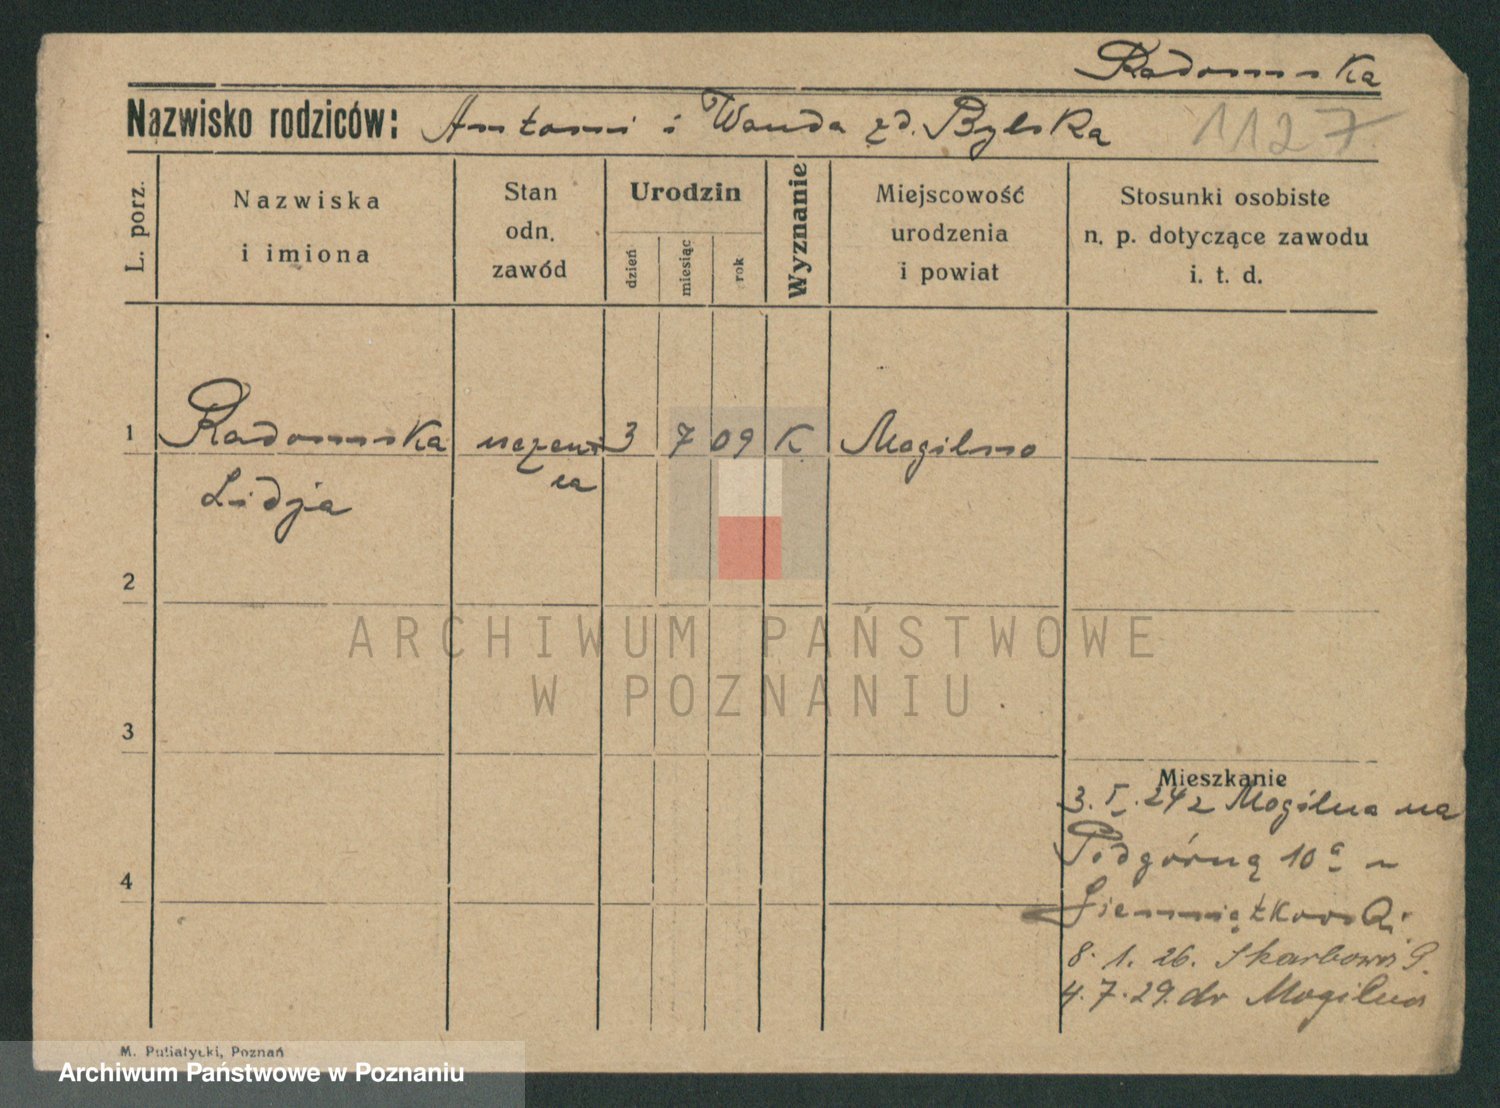 Radomska
Nazwisko rodziców: Antoni i Wanda zd. Bylska
1127
L. porz.
Nazwiska
i imiona
Stan
odn.
zawód
Urodzin
dzień
miesiąc
rok
Wyznanie
Miejscowość
urodzenia
i powiat
Stosunki osobiste
n. p. dotyczące zawodu
i. t. d.
1 Radomska uczeni 3 7 09 K Mogilno
ca
Lidja
2
3
4
ARCHIWUM PAŃSTWOWE
W POZNANIU
Mieszkanie
3. I. 24 z Mogilna na
Podgórną 10a
Siemiątkowski
8. 1. 26. Skarbowa 9.
4. 7. 29. do Mogilna
M. Putiatycki, Poznań
Archiwum Państwowe w Poznaniu